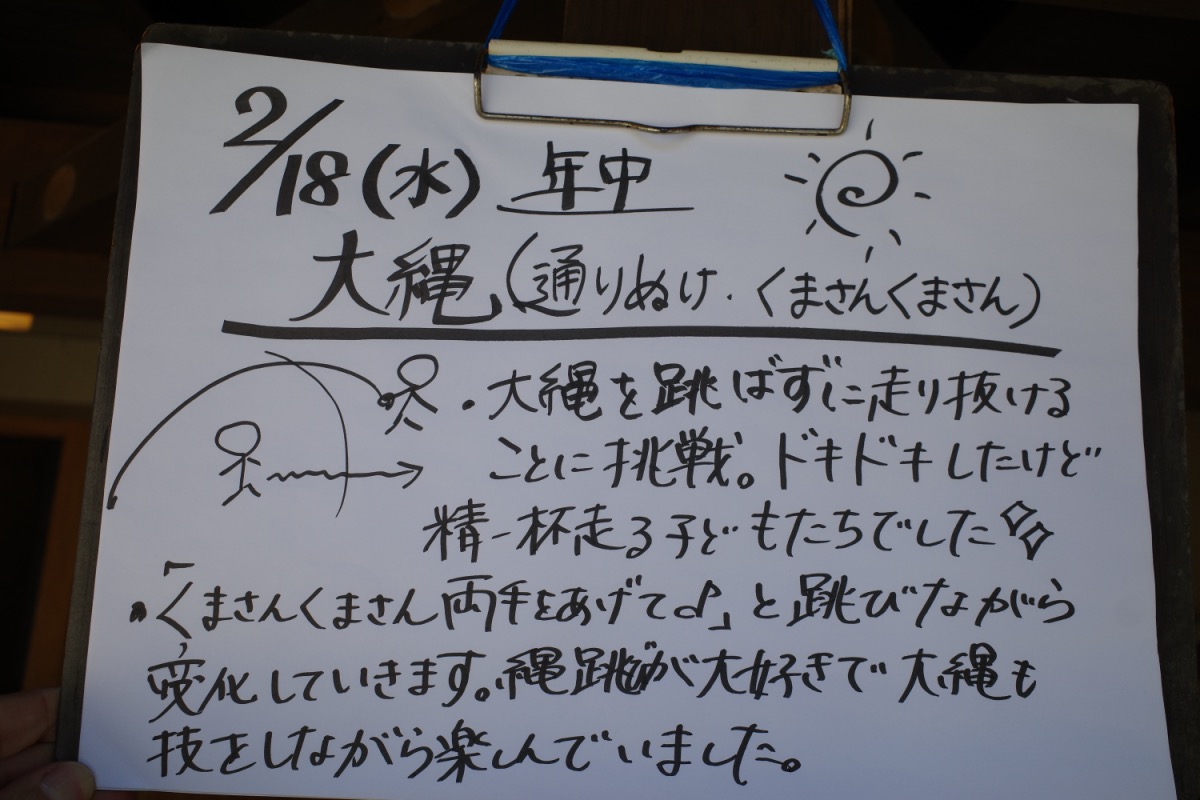 2/18(水) 年中
大縄(通りぬけ・くまさんくまさん)
・大縄を跳ばずに走り抜ける
ことに挑戦。ドキドキしたけど
精一杯走る子どもたちでした
・「くまさんくまさん両手をあげて♪」と跳びながら
変化していきます。縄跳びが大好きで大縄も
技をしながら楽しんでいました。